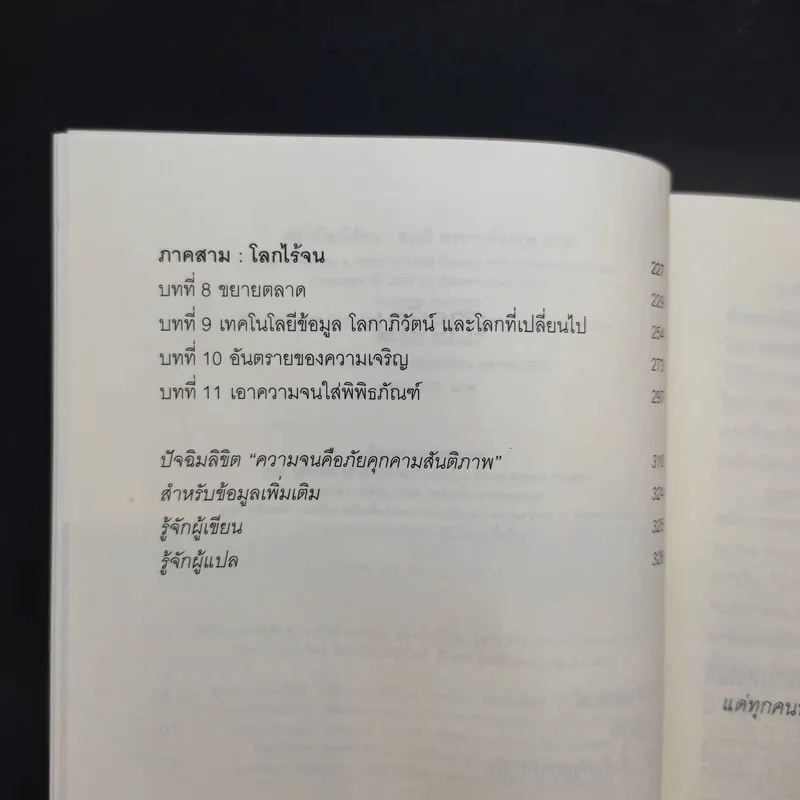 ภาคสาม : โลกไร้จน 227
บทที่ 8 ขยายตลาด 229
บทที่ 9 เทคโนโลยีข้อมูล โลกาภิวัตน์ และโลกที่เปลี่ยนไป 254
บทที่ 10 อันตรายของความเจริญ 273
บทที่ 11 เอาความจนใส่พิพิธภัณฑ์ 297
ปัจฉิมลิขิต “ความจนคือภัยคุกคามสันติภาพ” 310
สำหรับข้อมูลเพิ่มเติม 324
รู้จักผู้เขียน 325
รู้จักผู้แปล 326
แด่ทุกคน